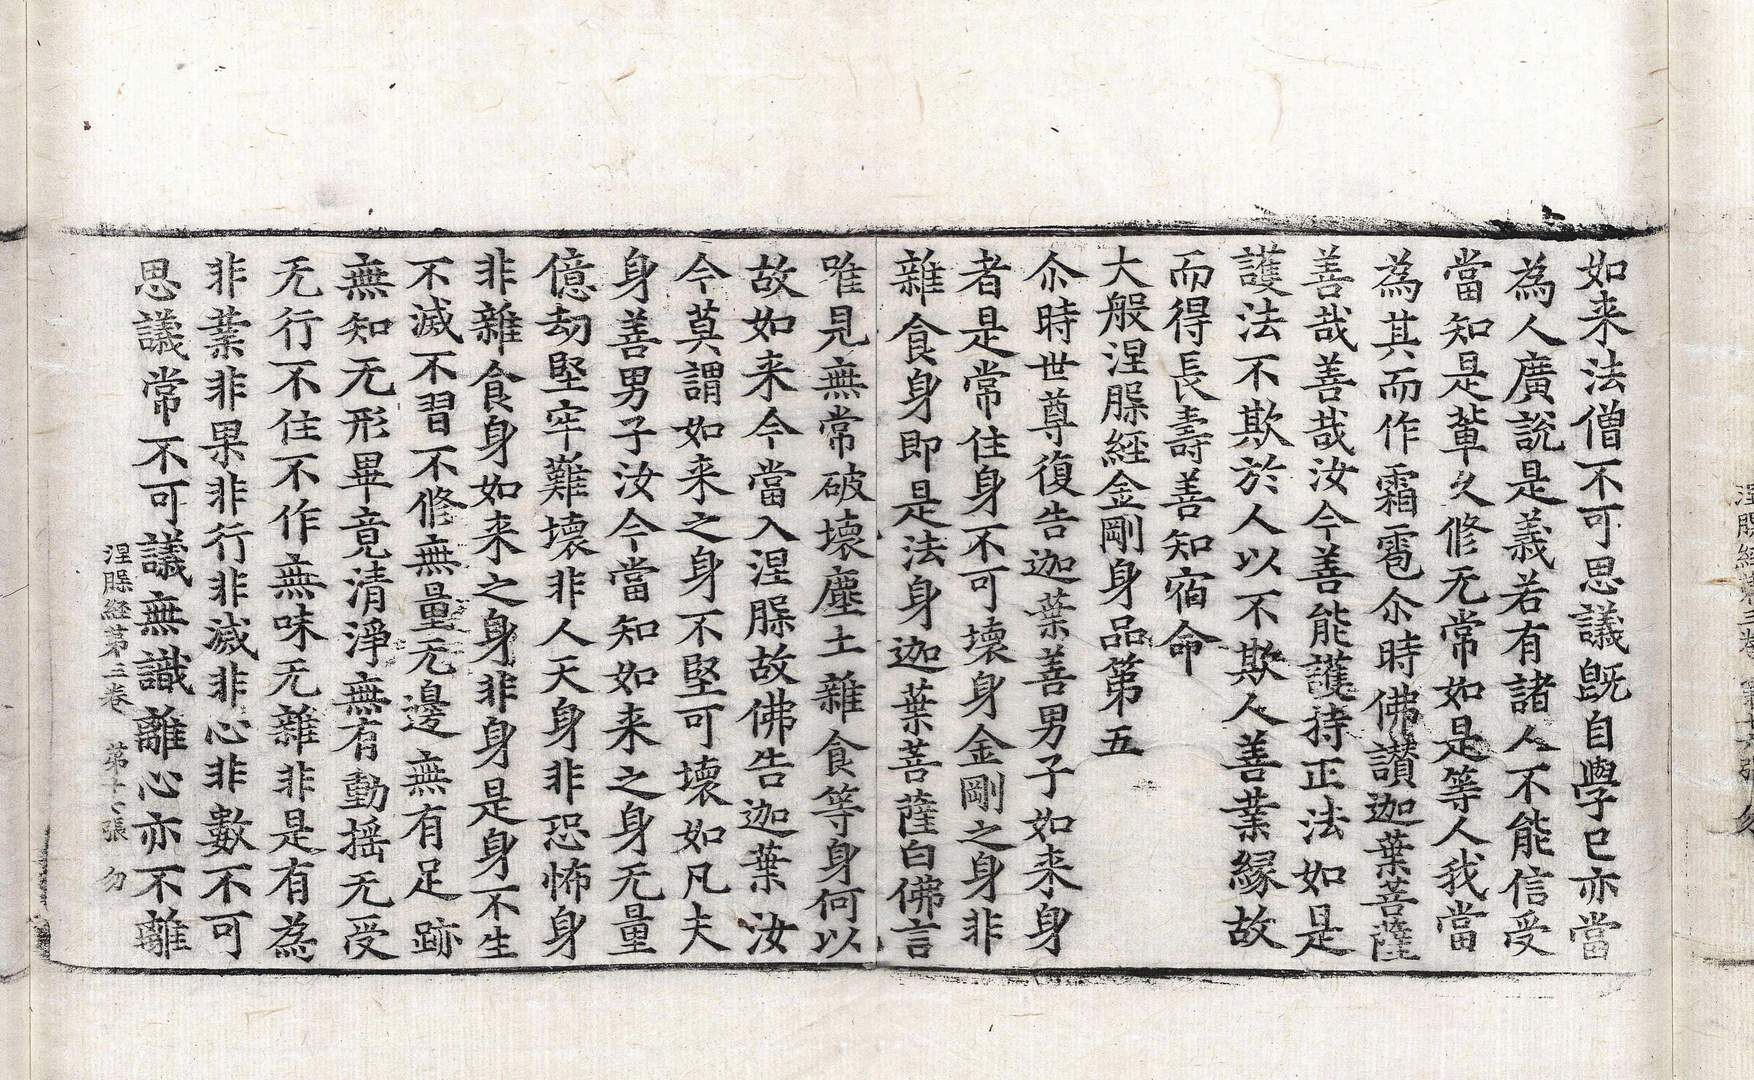 如来法僧不可思議旣自學已亦當
為人廣說是義若有諸人不能信受
當知是輩久修无常如是等人我當
為其而作霜雹尒時佛讃迦葉菩薩
善哉善哉汝今善能護持正法如是
護法不欺於人以不欺人善業縁故
而得長壽善知宿命
大般涅槃經金剛身品第五
尒時世尊復告迦葉善男子如来身
者是常住身不可壞身金剛之身非
雜食身即是法身迦葉菩薩白佛言
唯見無常破壞塵土雜食等身何以
故如来今當入涅槃故佛告迦葉汝
今莫謂如来之身不堅可壞如凡夫
身善男子汝今當知如来之身无量
億劫堅牢難壞非人天身非恐怖身
非雜食身如来之身非身是身不生
不滅不習不修無量无邊無有足跡
無知无形畢竟清淨無有動揺无受
无行不住不作無味无雜非是有為
非業非果非行非滅非心非數不可
思議常不可議無識離心亦不離
涅槃経第三卷 第 張 勿